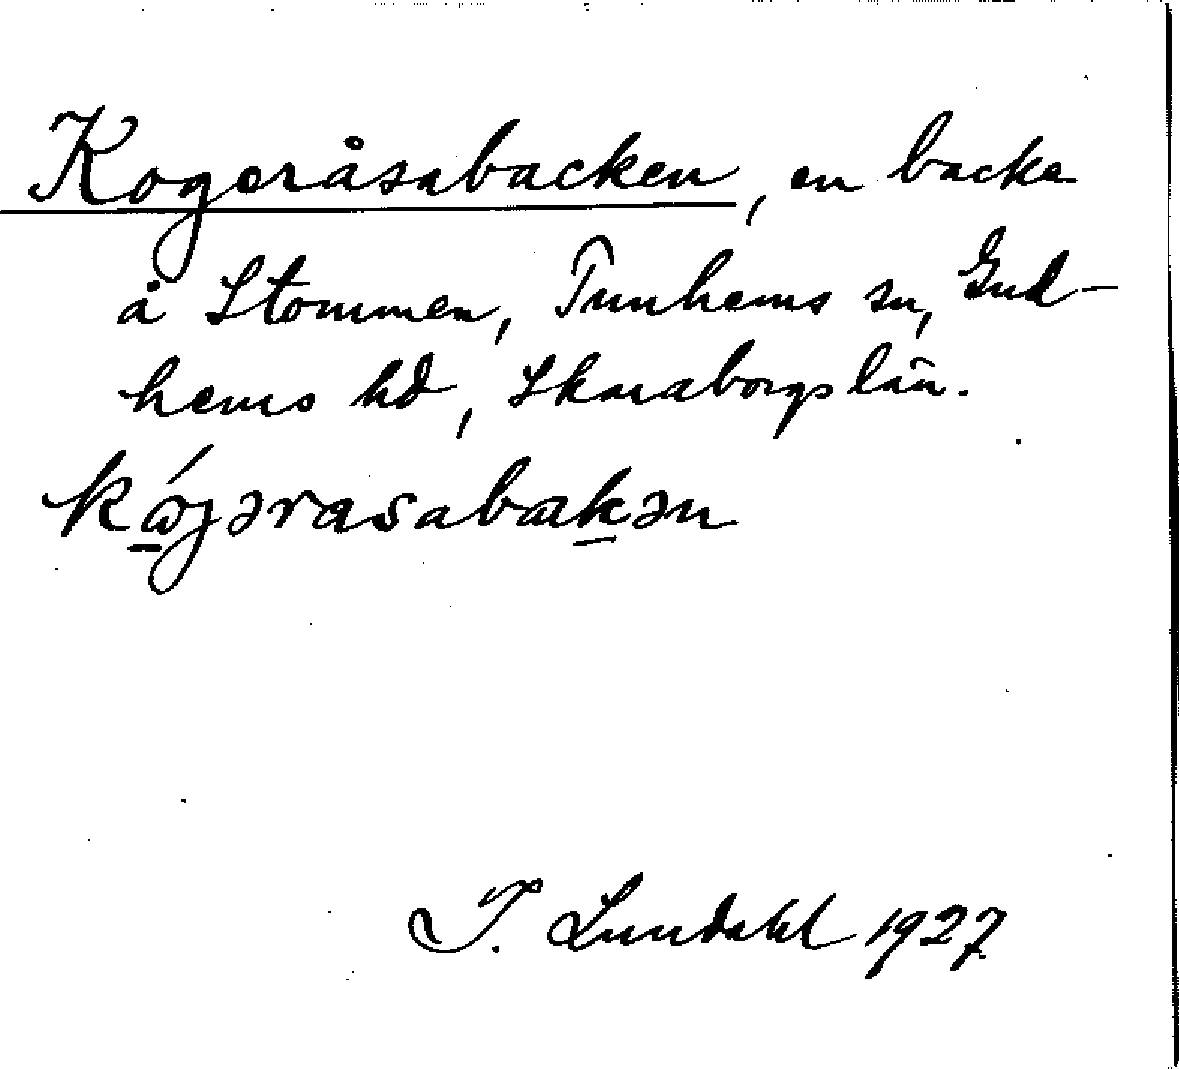 Kogeråsabacken, en backe
å Stommen, Tunhems sn, Gud-
hems hd, Skaraborgs län.
kǿgərasabakən
I. Lundahl 1927.